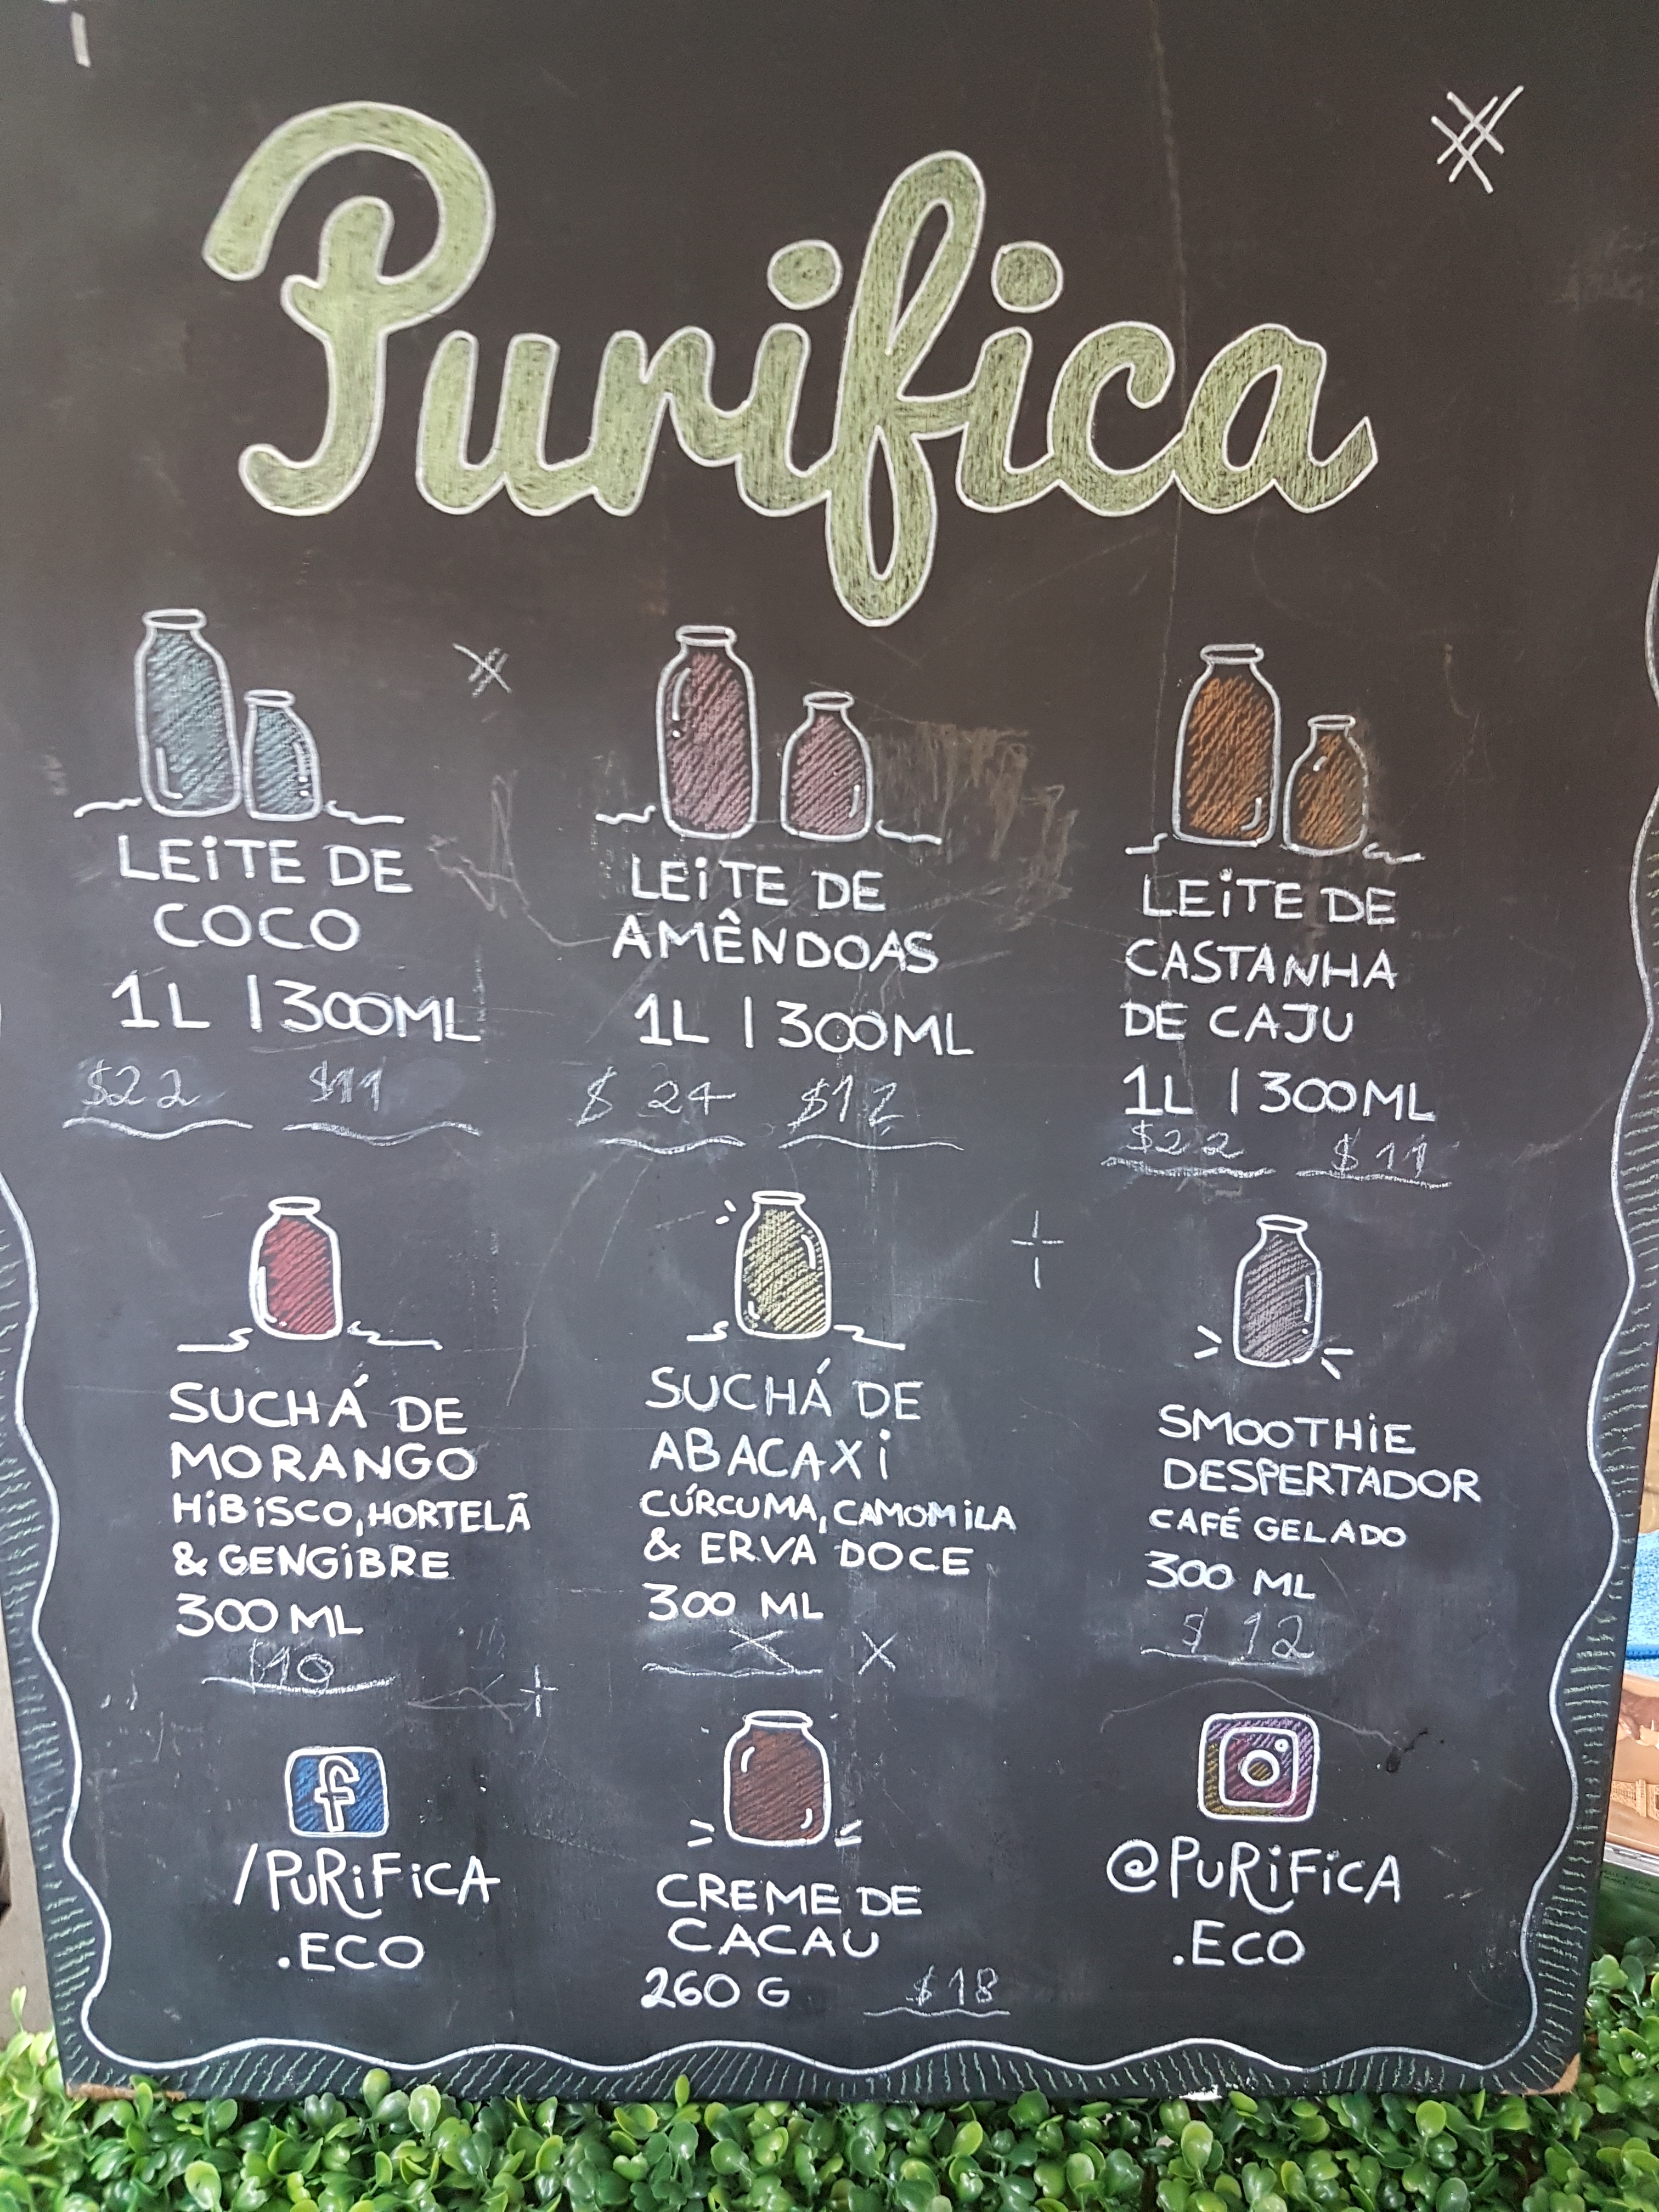 Purifica
LEITE DE
COCO
1L | 300ML
$22 $11
LEITE DE
AMÊNDOAS
1L | 300ML
$ 24 $12
LEITE DE
CASTANHA
DE CAJU
1L | 300ML
$22 $11
SUCHÁ DE
MORANGO
HIBISCO, HORTELÃ
& GENGIBRE
300 ML
$10
SUCHÁ DE
ABACAXI
CÚRCUMA, CAMOMILA
& ERVA DOCE
300 ML
X X
SMOOTHIE
DESPERTADOR
CAFÉ GELADO
300 ML
$ 12
f
/PURIFICA
.ECO
CREME DE
CACAU
260 G $18
@PURIFICA
.ECO